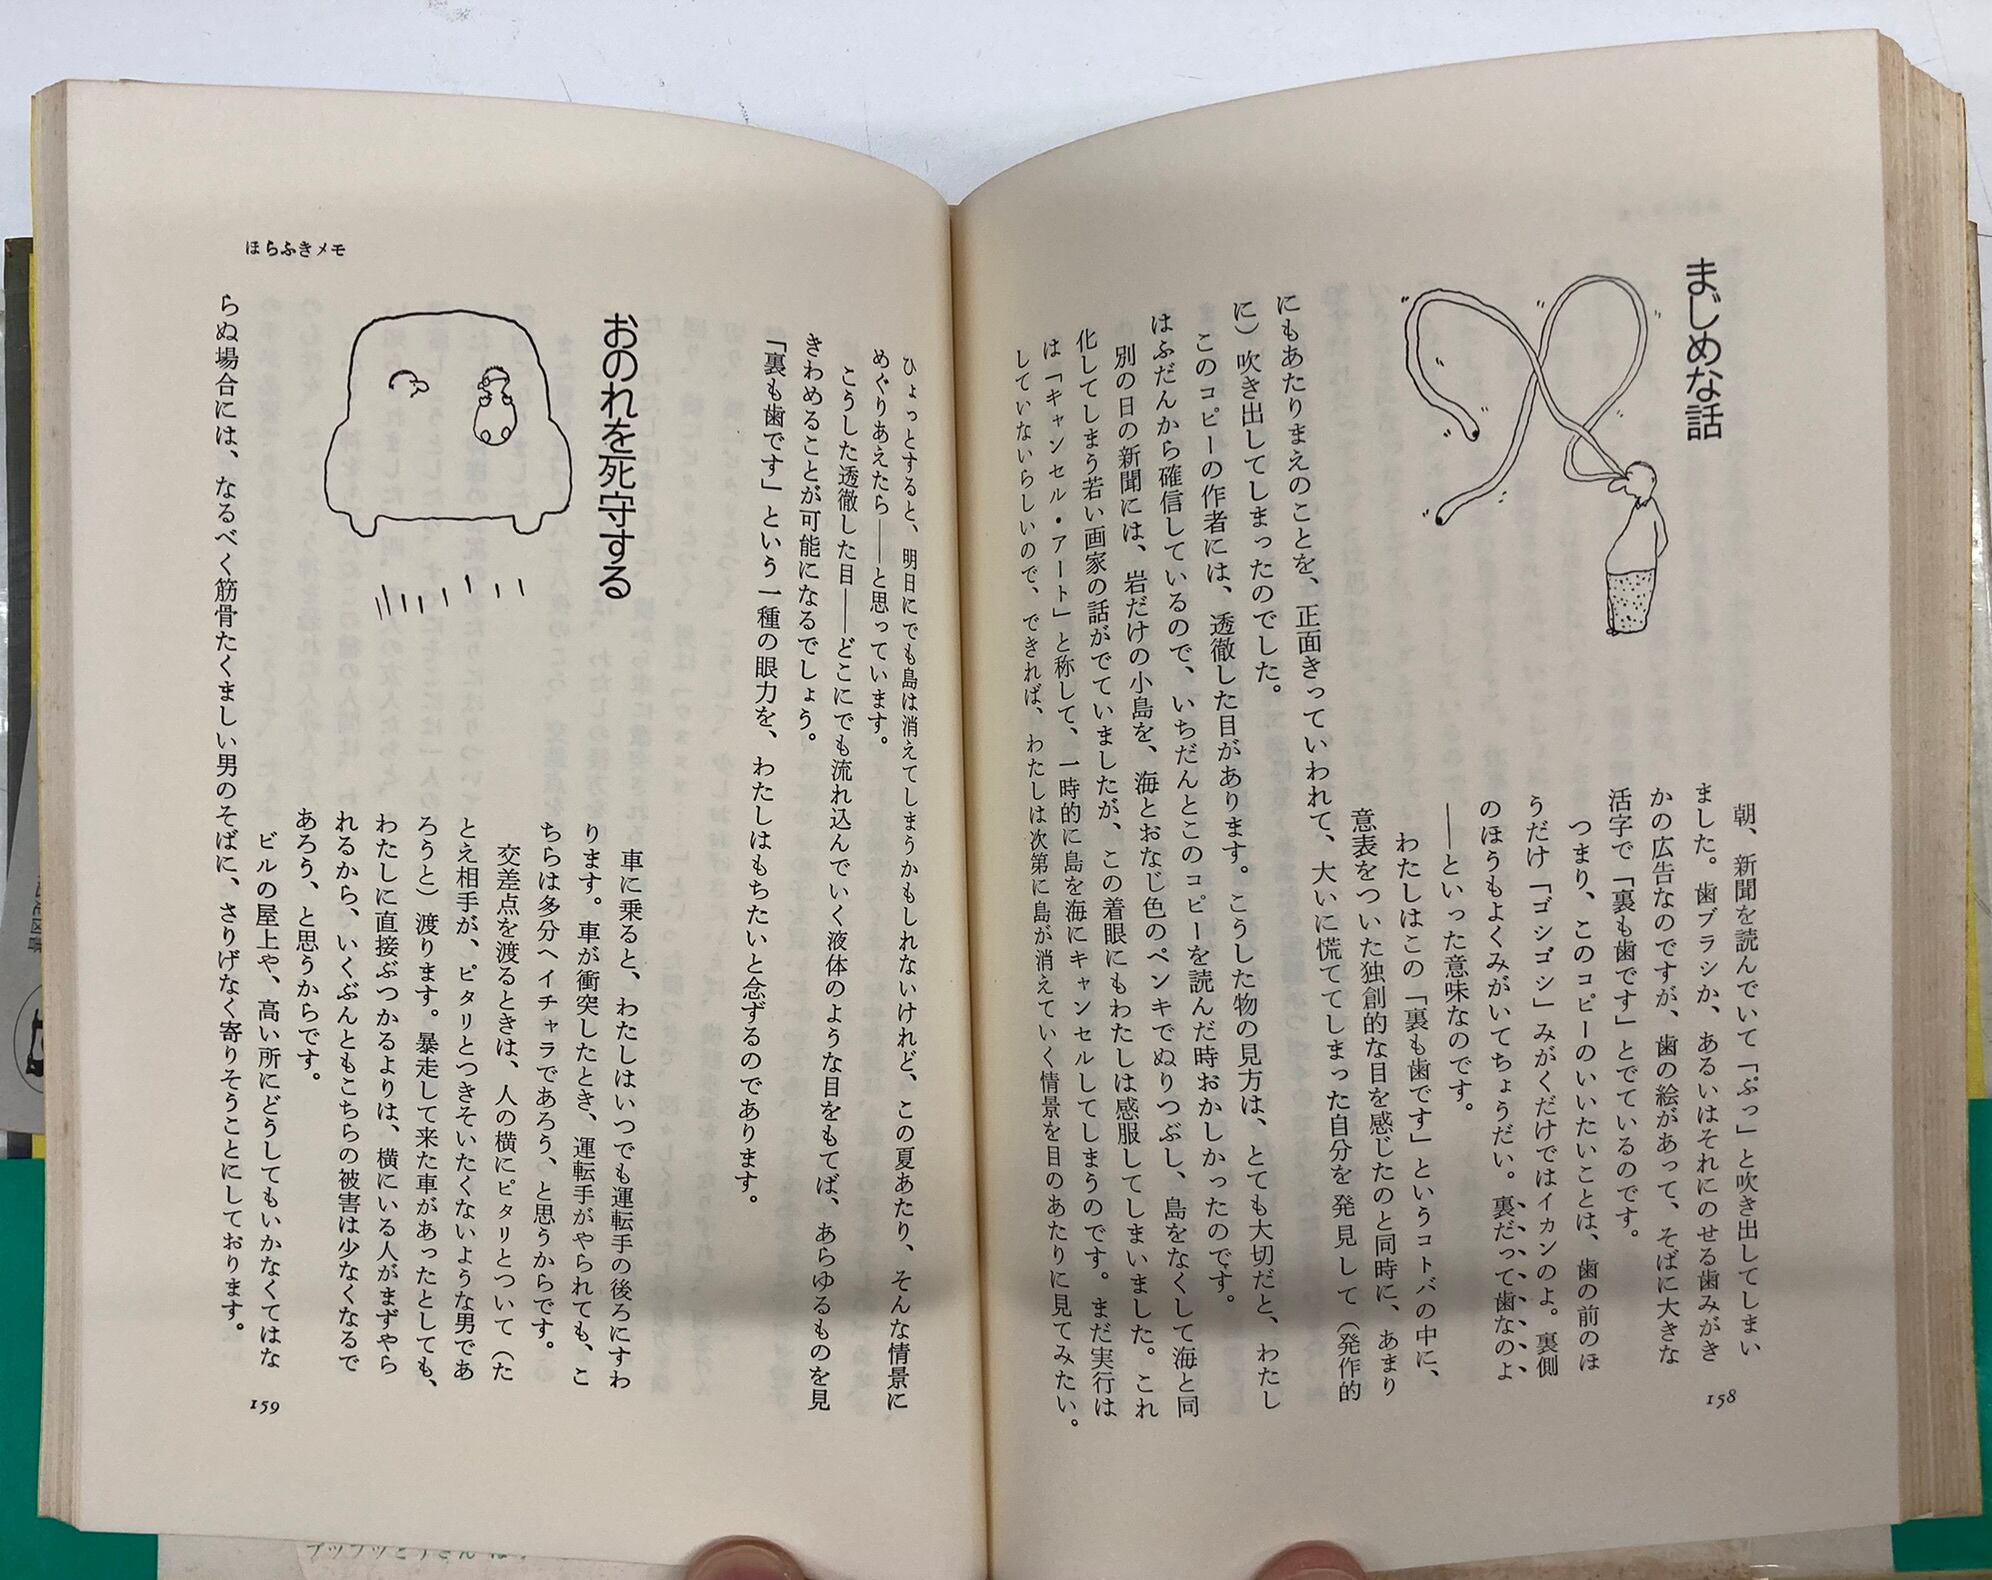 まじめな話
朝、新聞を読んでいて「ぷっ」と吹き出してしまい
ました。歯ブラシか、あるいはそれにのせる歯みがき
かの広告なのですが、歯の絵があって、そばに大きな
活字で「裏も歯です」とでているのです。
つまり、このコピーのいいたいことは、歯の前のほ
うだけ「ゴシゴシ」みがくだけではイカンのよ。裏側
のほうもよくみがいてちょうだい。裏だって歯なのよ
――といった意味なのです。
わたしはこの「裏も歯です」というコトバの中に、
意表をついた独創的な目を感じたのと同時に、あまり
にもあたりまえのことを、正面きっていわれて、大いに慌ててしまった自分を発見して（発作的
に）吹き出してしまったのでした。
このコピーの作者には、透徹した目があります。こうした物の見方は、とても大切だと、わたし
はふだんから確信しているので、いちだんとこのコピーを読んだ時おかしかったのです。
別の日の新聞には、岩だけの小島を、海とおなじ色のペンキでぬりつぶし、島をなくして海と同
化してしまう若い画家の話がでていましたが、この着眼にもわたしは感服してしまいました。これ
は「キャンセル・アート」と称して、一時的に島を海にキャンセルしてしまうのです。まだ実行は
していないらしいので、できれば、わたしは次第に島が消えていく情景を目のあたりに見てみたい。
158
ほらふきメモ
ひょっとすると、明日にでも島は消えてしまうかもしれないけれど、この夏あたり、そんな情景に
めぐりあえたら――と思っています。
こうした透徹した目――どこにでも流れ込んでいく液体のような目をもてば、あらゆるものを見
きわめることが可能になるでしょう。
「裏も歯です」という一種の眼力を、わたしはもちたいと念ずるのであります。
おのれを死守する
車に乗ると、わたしはいつでも運転手の後ろにすわ
ります。車が衝突したとき、運転手がやられても、こ
ちらは多分ヘイチャラであろう、と思うからです。
交差点を渡るときは、人の横にピタリとついて（た
とえ相手が、ピタリとつきそいたくないような男であ
ろうと）渡ります。暴走して来た車があったとしても、
わたしに直接ぶつかるよりは、横にいる人がまずやら
れるから、いくぶんともこちらの被害は少なくなるで
あろう、と思うからです。
ビルの屋上や、高い所にどうしてもいかなくてはな
らぬ場合には、なるべく筋骨たくましい男のそばに、さりげなく寄りそうことにしております。
159